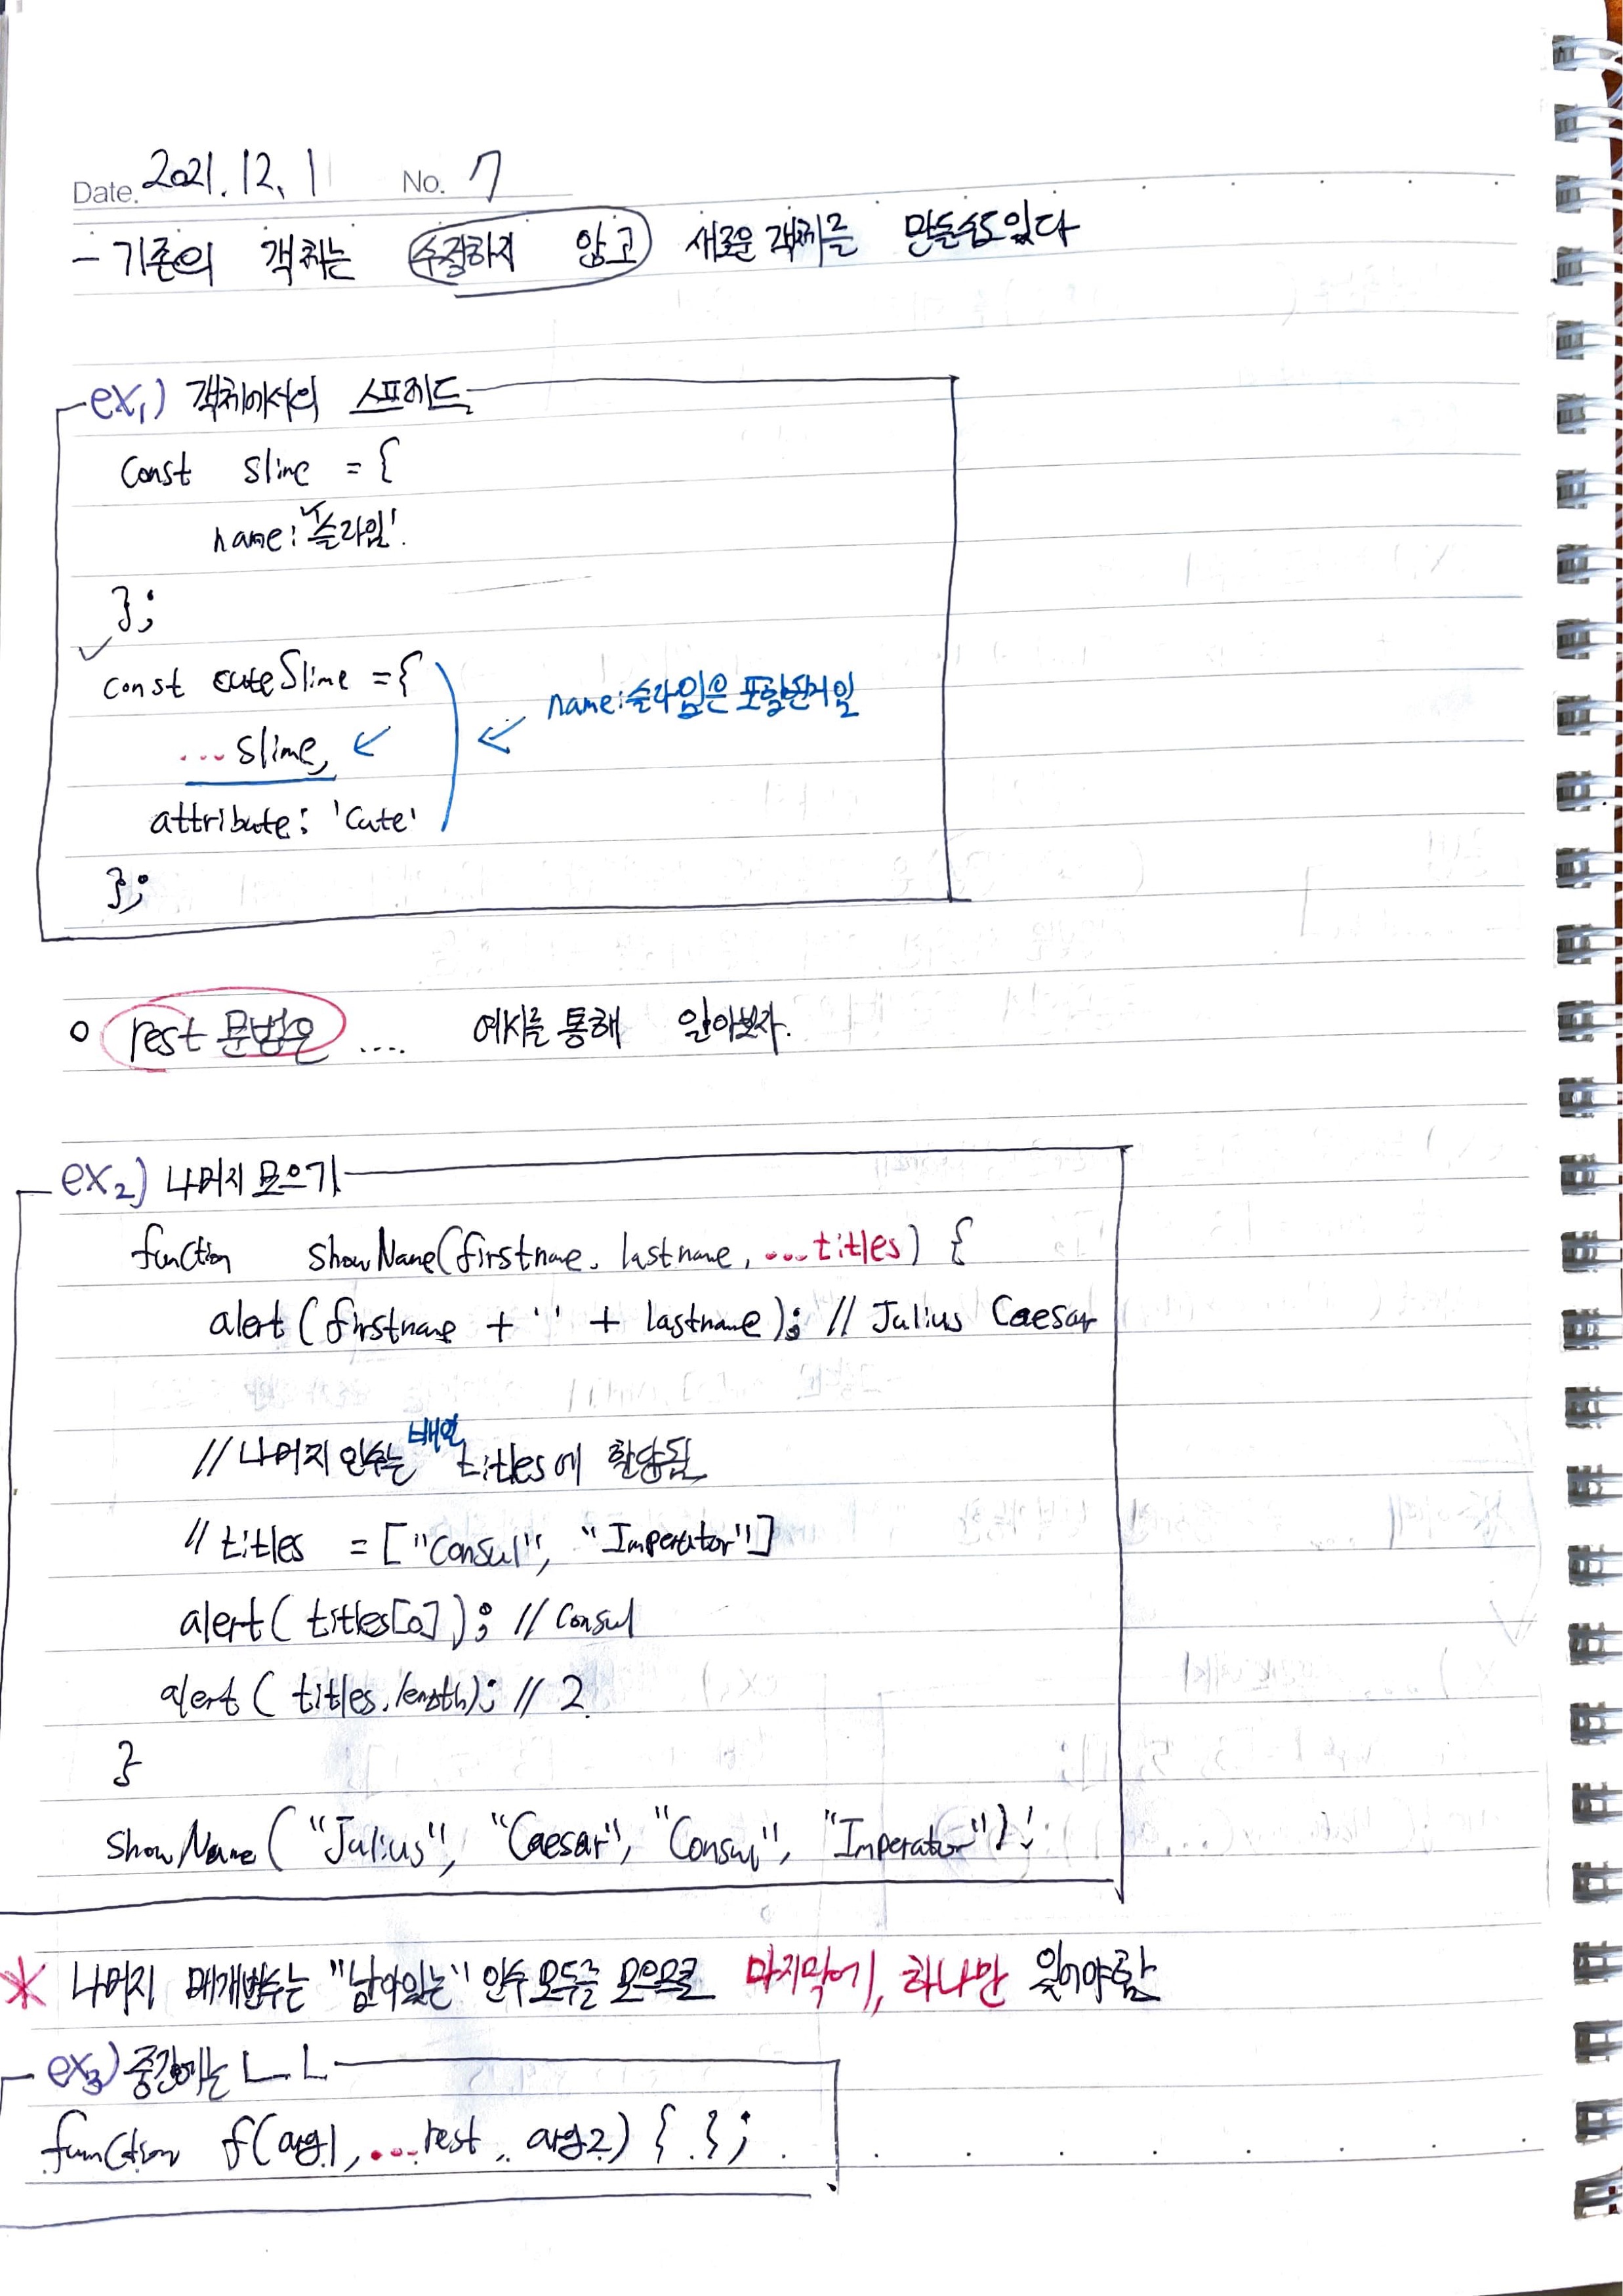 Date. 2021. 12. 1 No. 7
- 기존의 객체는 수정하지 않고 새로운 객체를 만들수도있다
ex1) 객체에서의 스프레드
const slime = {
name: '슬라임'
};
const cuteSlime = {
...slime,
name: 슬라임은 포함된거임
attribute: 'cute'
};
o rest 문법은 .... 예시를 통해 알아보자.
ex2) 나머지 모으기
function showName(firstname, lastname, ...titles) {
alert(firstname + ' ' + lastname); // Julius Caesar
// 나머지 인수는 배열 titles에 할당됨
// titles = ["Consul", "Imperator"]
alert( titles[0] ); // Consul
alert( titles.length); // 2
}
showName( "Julius", "Caesar", "Consul", "Imperator");
* 나머지 매개변수는 "남아있는" 인수 모두를 모으므로 마지막에, 하나만 있어야함
ex3) 중간에는 ㄴㄴ
function f(arg1, ...rest, arg2) { };